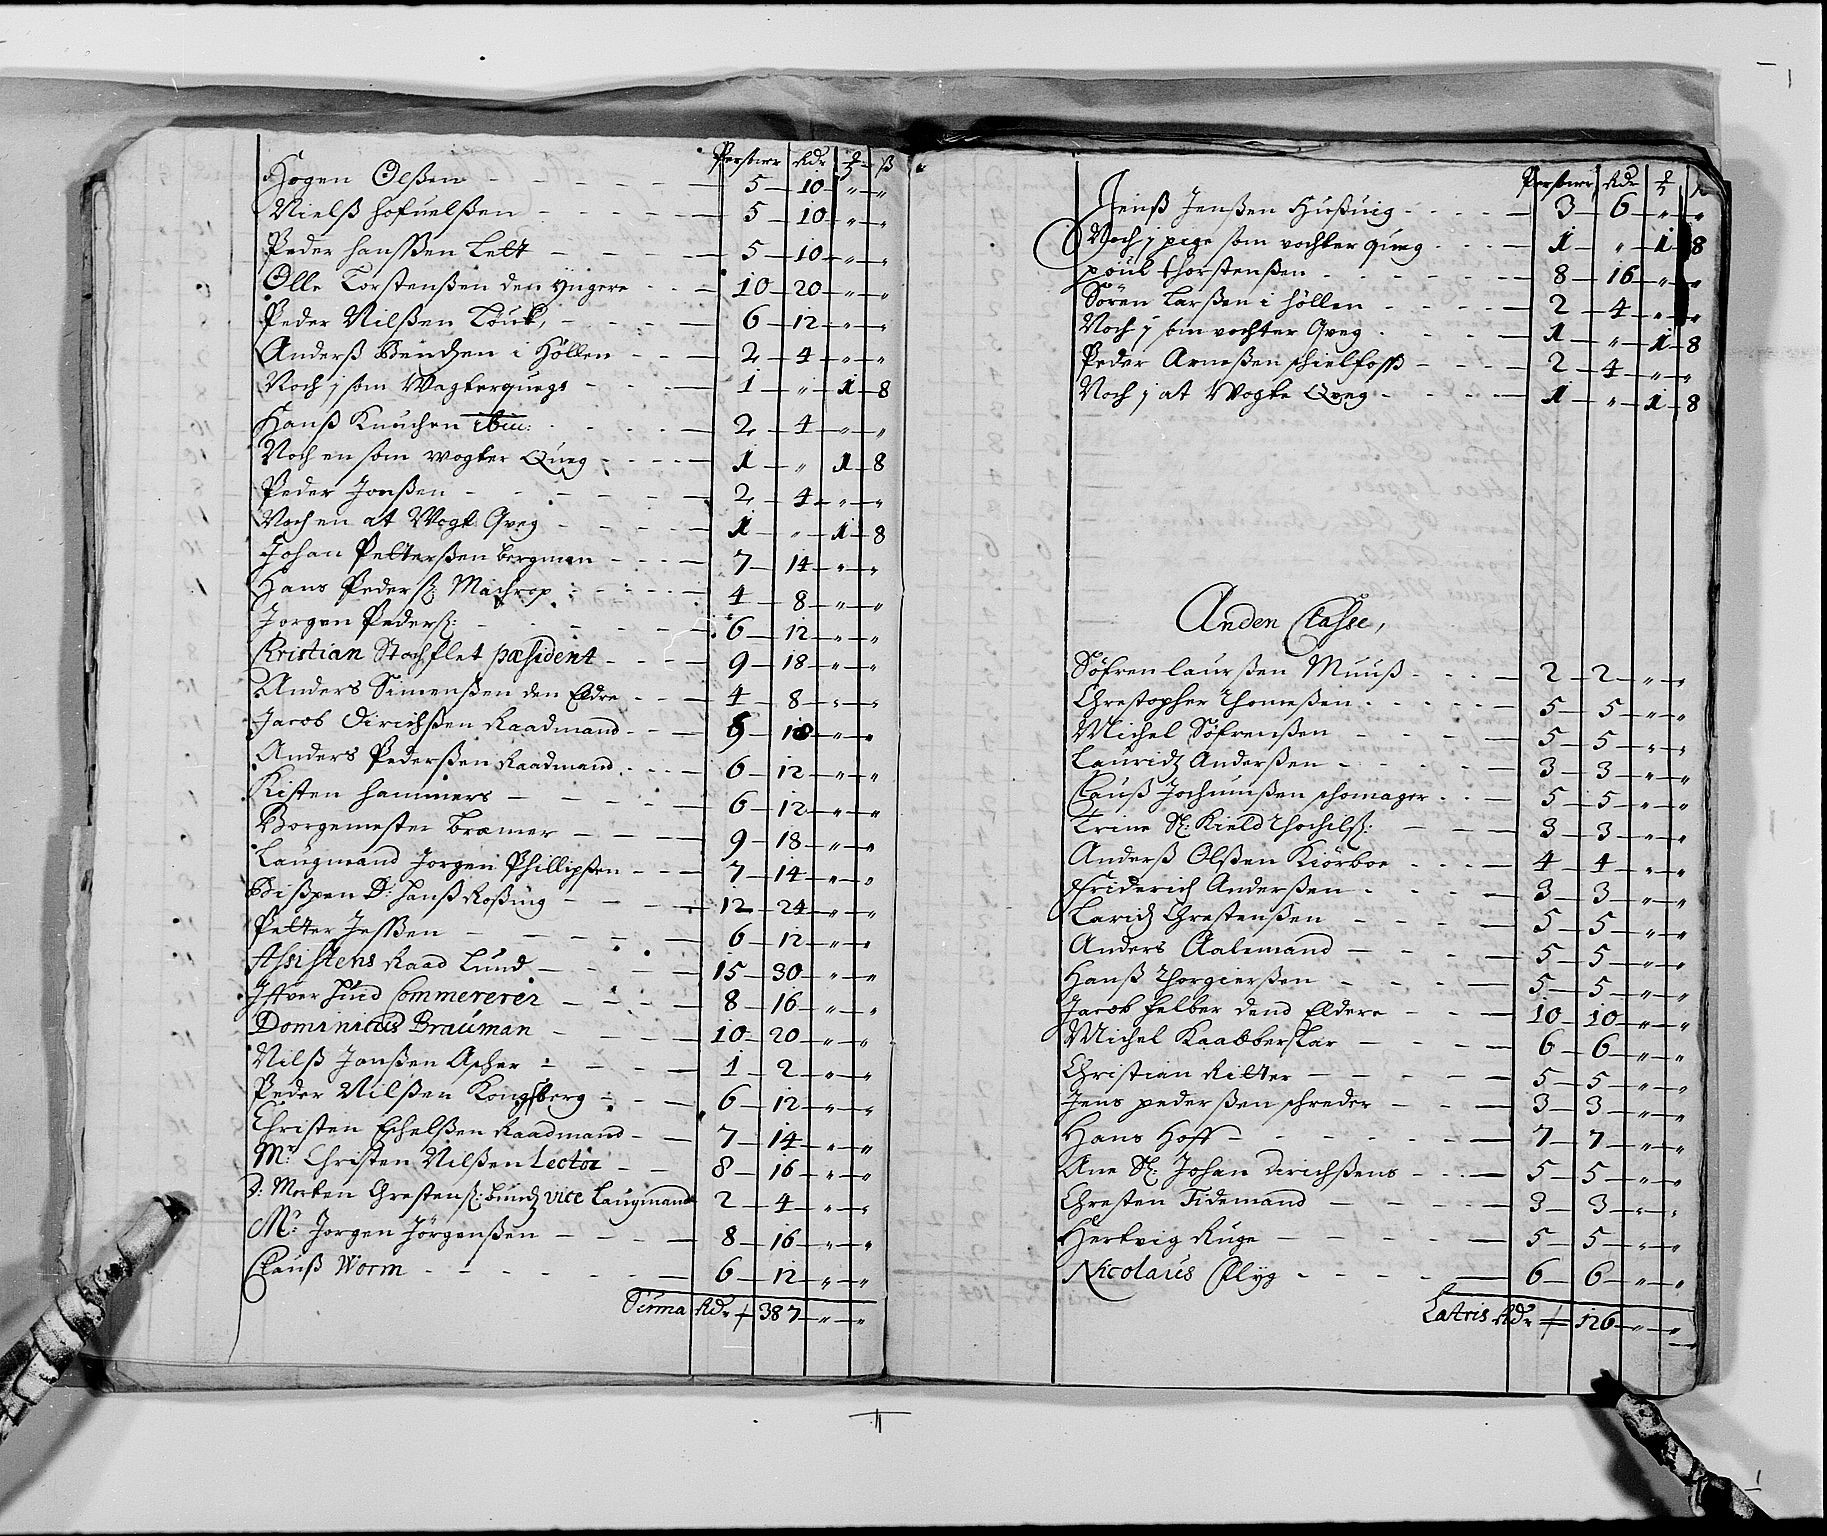 Personer Rdr
Hogen Olßen 5 10 " "
Nielß hofuelßen 5 10 " "
Peder hanßen Lett 5 10 " "
Olle Torstenßen den yngere 10 20 " "
Peder Nilßen Touk, 6 12 " "
Anderß Bendzen i Höllen 2 4 " "
Noch j som Wagter quegs 1 " 1 8
Hanß Knuchen ibm: 2 4 " "
Noch en som wogter Queg 1 " 1 8
Peder Jonßen 2 4 " "
Noch en at Wogte Qveg 1 " 1 8
Johan Petterßen bergman 7 14 " "
Hans Peders: Machrop 4 8 " "
Jorgen Peders: 6 12 " "
Kristian Stochflet præsident 9 18 " "
Anders Simenßen den Eldre 4 8 " "
Jacob Dirichßen Raadmand 9 18 " "
Anders Pederßen Raadmand 6 12 " "
Kisten hammers 6 12 " "
Borgemester bræmer 9 18 " "
Laugmand Jorgen Phillipßen 7 14 " "
Bißpen D: hanß Roßing 12 24 " "
Petter Jeßen 6 12 " "
Assistens Raad Lund 15 30 " "
Ifver hund Commererer 8 16 " "
Dominicus Brauman 10 20 " "
Nilß Janßen Ascher 1 2 " "
Peder Nilßen Kongsberg 6 12 " "
Christen Echelßen Raadmand 7 14 " "
Mr: Christen Nilßen Lector 8 16 " "
D: Morten Chrestens: bundz vice Laugmand 2 4 " "
Mr: Jorgen Jörgenßen 8 16 " "
Clauß Worm 6 12 " "
Suma Rdr 387 " "
Personer Rdr
Jenß Jenßen Hußuig 3 6 " "
Noch j pige som vochter queg 1 " 1 8
poul thorstenßen 8 16 " "
Sören Larßen i höllen 2 4 " "
Noch j som vochter Qveg 1 " 1 8
Peder Arneßen schielfoss 2 4 " "
Noch j at Wogte Qveg 1 " 1 8
Anden Classe,
Söfren laurßen Muuß 2 2 " "
Chrestopher Thomeßen 5 5 " "
Michel Söfrenßen 5 5 " "
Lauridz Anderßen 3 3 " "
Clauß Jochumßen schomager 5 5 " "
Trine Sl: Kield Thochils: 3 3 " "
Anderß Olßen Kiörboe 4 4 " "
Friderich Anderßen 3 3 " "
Laridz Chrestenßen 5 5 " "
Anders Aalemand 5 5 " "
Hanß Thorgierßen 5 5 " "
Jacob felber dend Eldere 10 10 " "
Michel Kaabberslar 6 6 " "
Christian Ritter 5 5 " "
Jens pederßen schreder 3 3 " "
Hans Hoff 7 7 " "
Ane Sl: Johan dirichßens 5 5 " "
Chresten Tidemand 3 3 " "
Hertvig Ruge 5 5 " "
Nicolaus Plyg 6 6 " "
Latris Rdr 126 " "